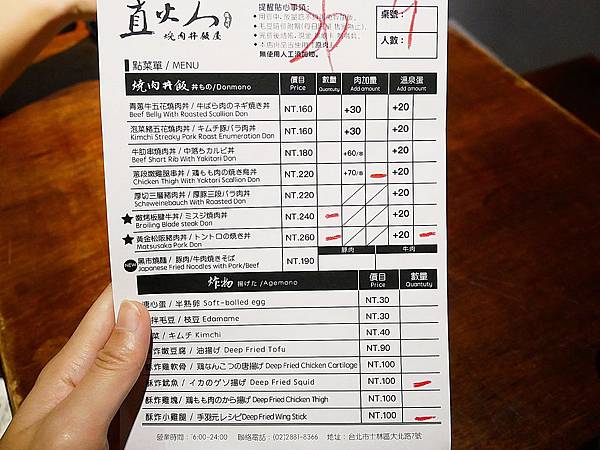 直火人
燒肉丼飯屋
提醒貼心事項:
無使用人工添加物。
桌號:
人數:
點菜單 / MENU
燒肉丼飯 丼もの/Donmono 價目 Price 數量 Quantuty 肉加量 Add amount 溫泉蛋 Add amount
青蔥牛五花燒肉丼 / 牛ばら肉のネギ焼き丼 NT.160 +30 +20
Beef Belly With Roasted Scallion Don
泡菜豬五花燒肉丼 / キムチ豚バラ肉丼 NT.160 +30 +20
Kimchi Streaky Pork Roast Enumeration Don
牛肋串燒肉丼 / 中落ちカルビ丼 NT.180 +60/串 +20
Beef Short Rib With Yakitori Don
蔥段嫩雞腿串丼 / 鶏もも肉の焼き鳥丼 NT.220 +70/串 +20
Chicken Thigh With Yakitori Scallion Don
厚切三層豬肉丼 / 厚豚三段バラ肉丼 NT.220 +20
Scheweinebauch With Roasted Don
★ 嫩烤板腱牛丼 / ミスジ燒肉丼 NT.240 +20
Broiling Blade steak Don
★ 黃金松阪豬肉丼 / トントロの焼き丼 NT.260 +20
Matsusaka Pork Don
豚肉 牛肉
NEW 黑市燒麵 / 豚肉/牛肉焼きそば NT.190
Japanese Fried Noodles with Pork/Beef
炸物 揚げた /Agemano 價目 Price 數量 Quantuty
心蛋 / 半熟卵 Soft-bolled egg NT.30
拌毛豆 / 枝豆 Edamame NT.30
菜 / キムチ Kimchi NT.40
炸嫩豆腐 / 油揚げ Deep Fried Tofu NT.90
炸雞軟骨 / 鶏なんこつの唐揚げ Deep Fried Chicken Cartiloge NT.100
酥炸魷魚 / イカのゲソ揚げ Deep Fried Squid NT.100
酥炸雞塊 / 鶏もも肉のから揚げ Deep Fried Chicken Thigh NT.100
酥炸小雞腿 / 手羽元レシピ Deep Fried Wing Stick NT.100
營業時間: 16:00-24:00 聯絡電話: (02)2881-8366 地址: 台北市士林區大北路7號